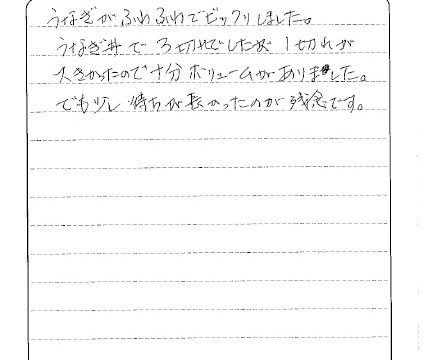 うなぎがふわふわでビックリしました。
うなぎ丼で3切れでしたが1切れが
大きかったので十分ボリュームがありました。
でも少し待ちが長かったのが残念です。